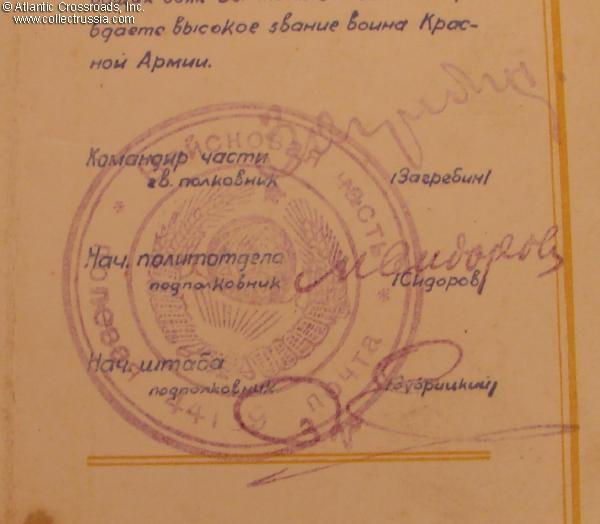 © Atlantic Crossroads, Inc.
www.collectrussia.com
вдаете высокое звание воина Крас-
ной Армии.
Командир части
гв. полковник /Загребин/
Нач. политотдела
подполковник /Сидоров/
Нач. штаба
подполковник /Дубрицкий/
Войсковая часть * почта * полевая *
МСидоров